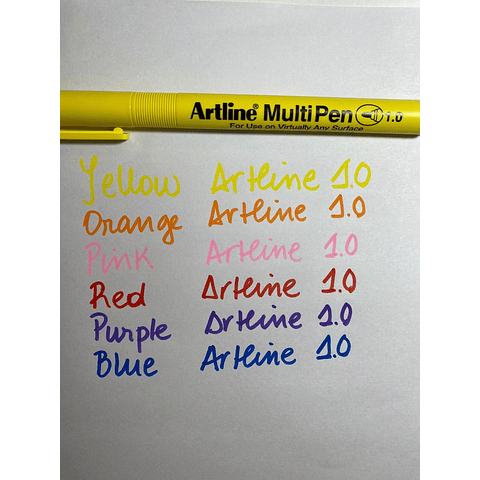 Artline® MultiPen 1.0
For Use on Virtually Any Surface
Yellow Artline 1.0
Orange Artline 1.0
Pink Artline 1.0
Red Artline 1.0
Purple Artline 1.0
Blue Artline 1.0